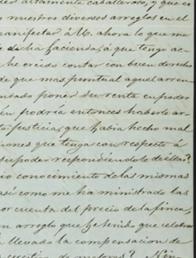 des altamente caballeroso, y que
nuestros diversos arreglos en el
manifestar á U. ahora lo que me
dicha hacienda, á que tengo ac
he creido contar con buen derecho
de que mas puntual aquel arren
cesado poner su renta en pode
podria entonces haberle ar
justicias que habia hecho mas
ciones que tengo con respecto á
su poder respondiendole de ellas?
conocimiento de las mismas
asi como me ha ministrado las
por cuenta del precio de la finca,
un arreglo que he tenido que celebrar
llevada la compensacion de